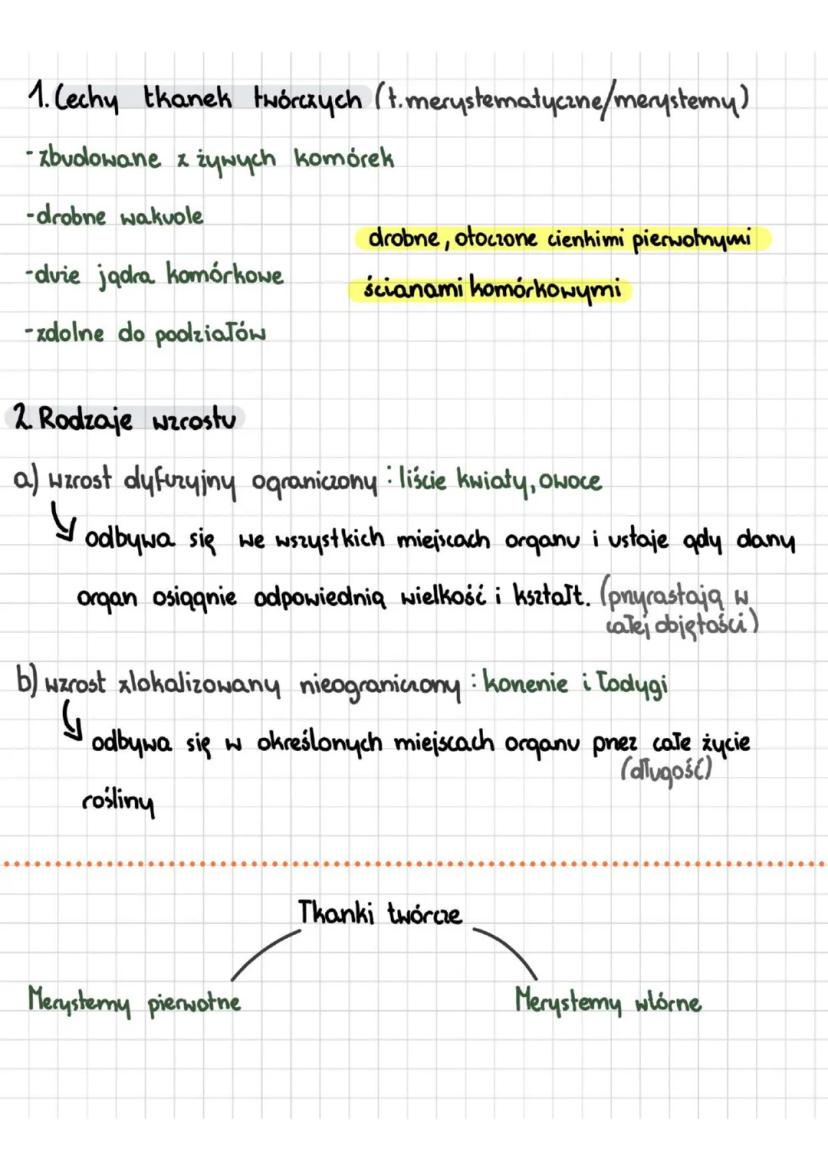 1. Cechy tkanek twórczych (t.merystematyczne/merystemy)
- zbudowane z żywych komórek
-drobne wakuole
drobne, otoczone cienkimi pierwotnymi
-duże jądra komórkowe
ścianami komórkowymi
-zdolne do podziałów
2. Rodzaje wzrostu
a) wzrost dyfuzyjny ograniczony : liście kwiaty, owoce
odbywa się we wszystkich miejscach organu i ustaje gdy dany
organ osiągnie odpowiednią wielkość i kształt. (przyrastają w
całej objętości)
b) wzrost zlokalizowany nieograniczony : korzenie i łodygi
odbywa się w określonych miejscach organu przez całe życie
(długość)
rośliny
Tkanki twórcze
Merystemy pierwotne
Merystemy wtórne